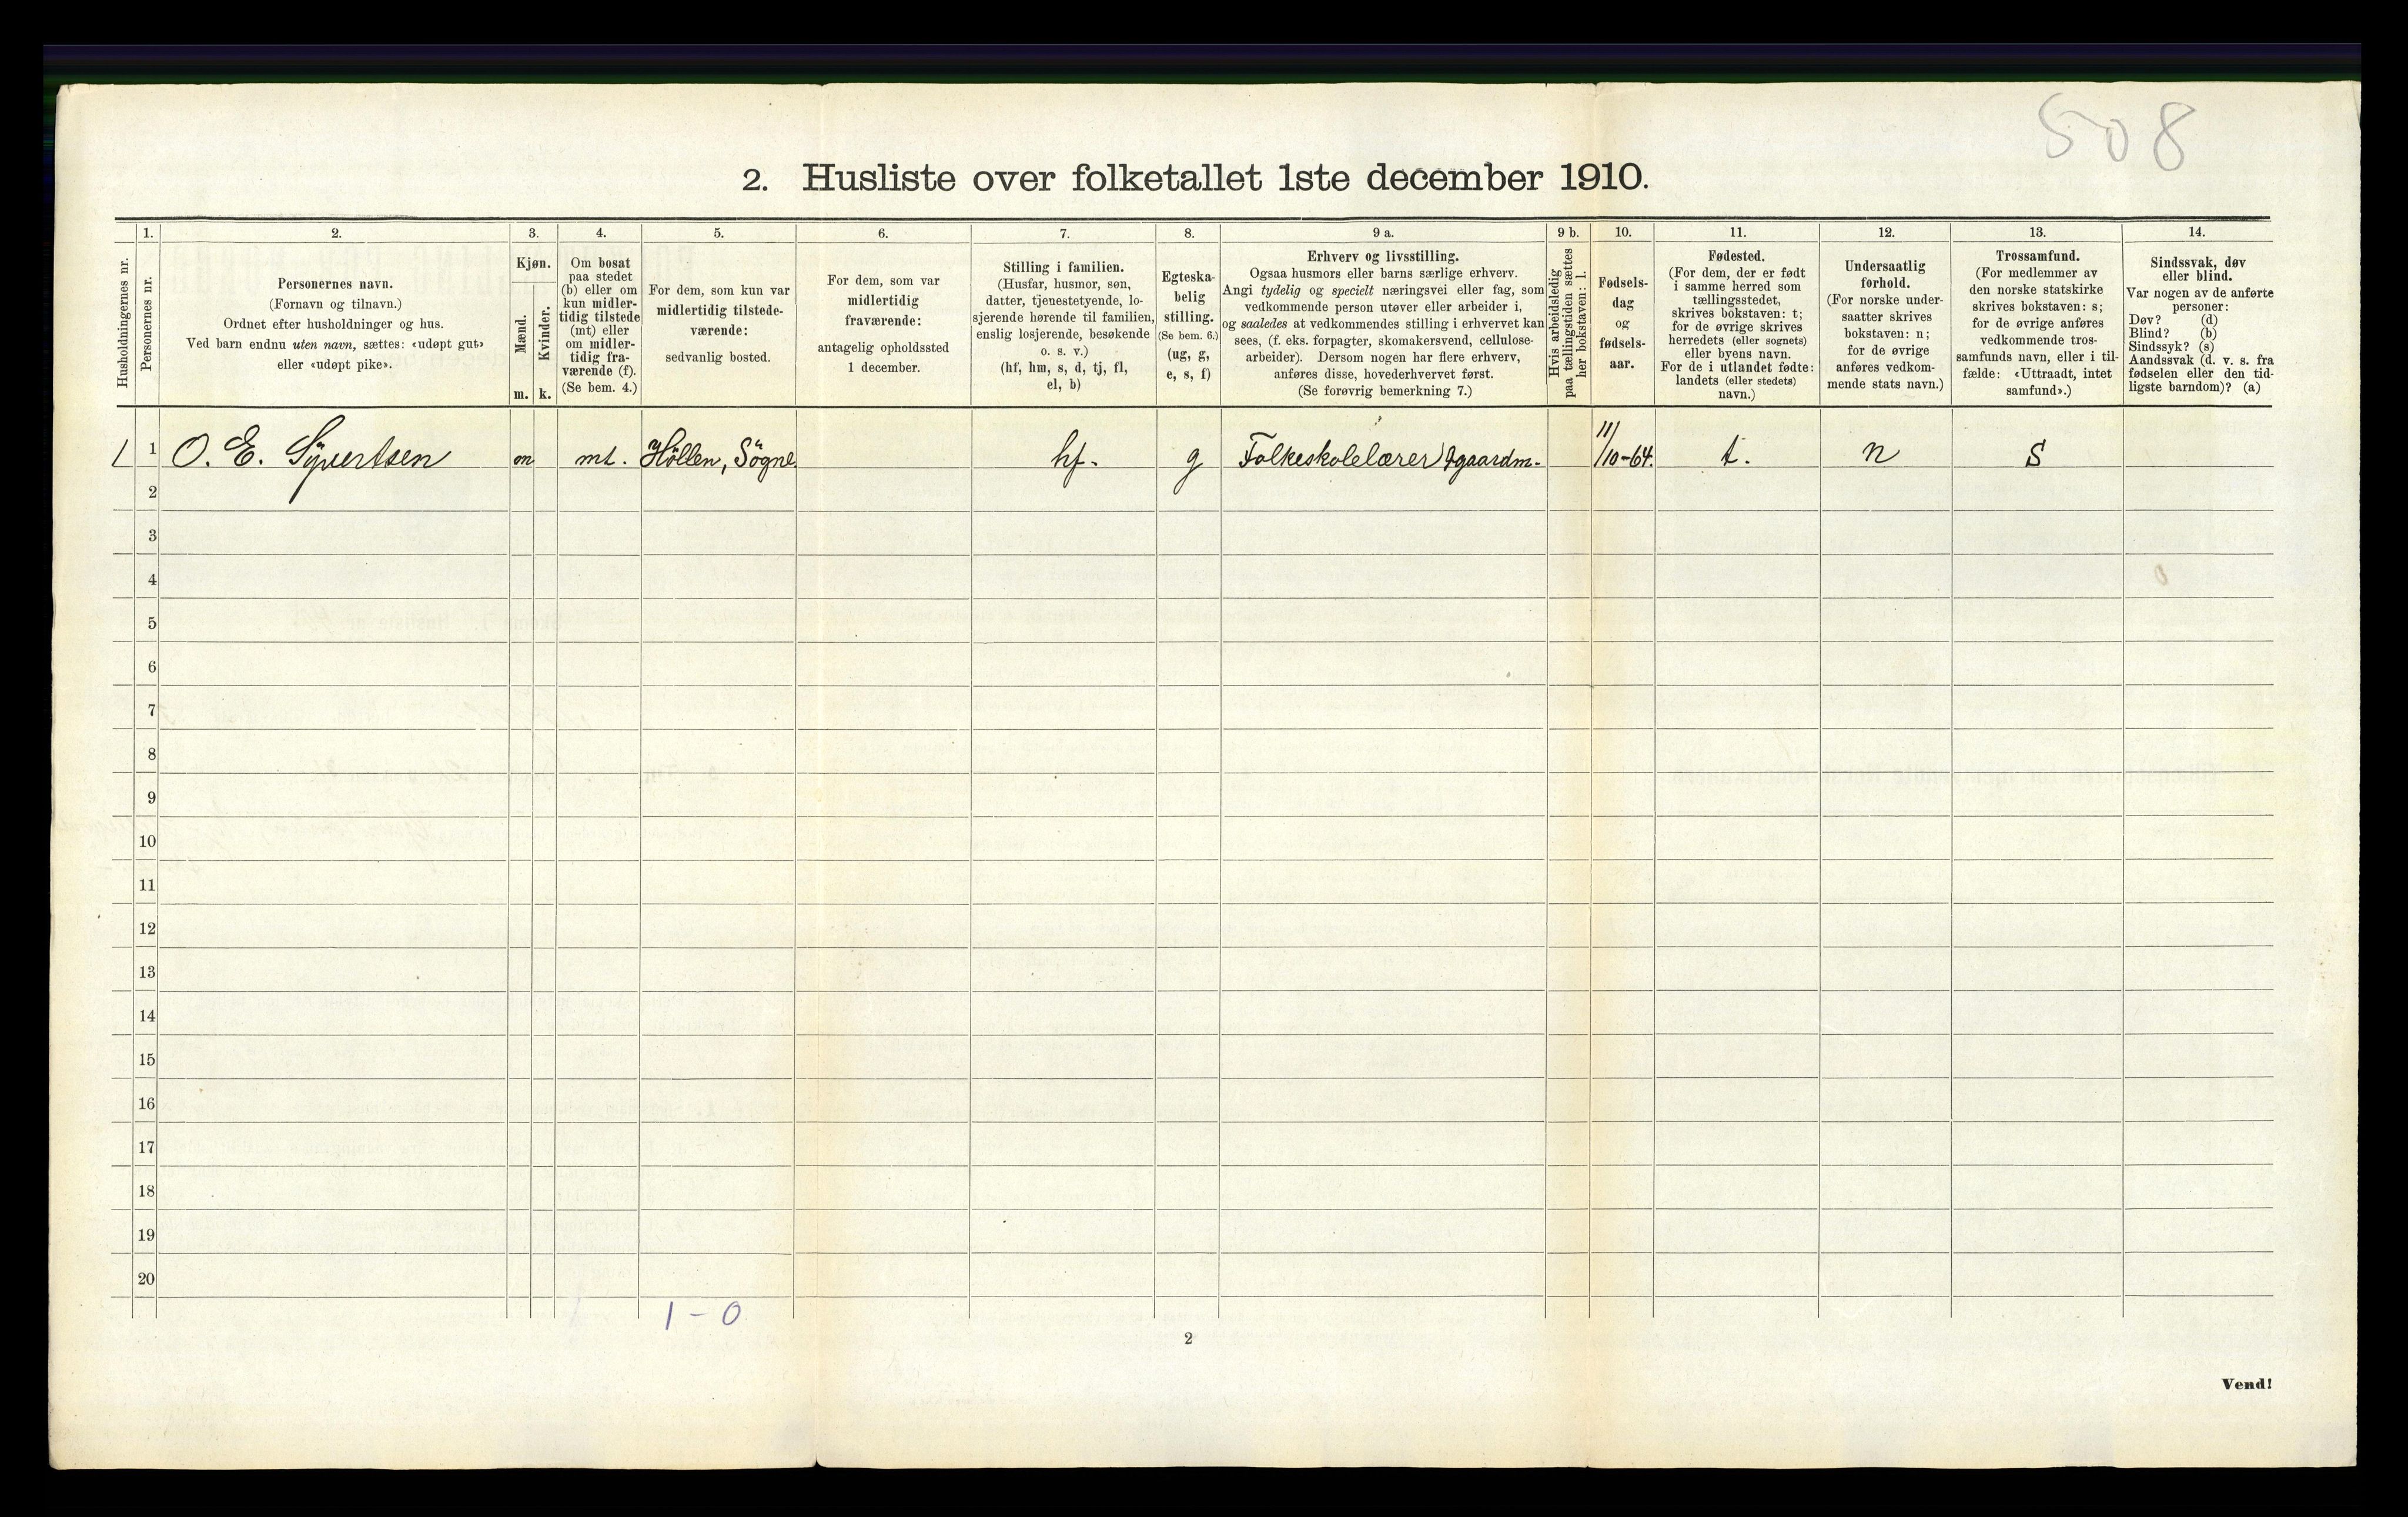 508
2. Husliste over folketallet 1ste december 1910.
Husholdningernes nr.
1.
Personernes nr.
2.
Personernes navn.
(Fornavn og tilnavn.)
Ordnet efter husholdninger og hus.
Ved barn endnu uten navn, sættes: «udøpt gut»
eller «udøpt pike».
3.
Kjøn.
Mænd.
Kvinder.
m. k.
4.
Om bosat
paa stedet
(b) eller om
kun midler-
tidig tilstede
(mt) eller
om midler-
tidig fra-
værende (f).
(Se bem. 4.)
5.
For dem, som kun var
midlertidig tilstede-
værende:
sedvanlig bosted.
6.
For dem, som var
midlertidig
fraværende:
antagelig opholdssted
1 december.
7.
Stilling i familien.
(Husfar, husmor, søn,
datter, tjenestetyende, lo-
sjerende hørende til familien,
enslig losjerende, besøkende
o. s. v.)
(hf, hm, s, d, tj, fl,
el, b)
8.
Egteska-
belig
stilling.
(Se bem. 6.)
(ug, g,
e, s, f)
9 a.
Erhverv og livsstilling.
Ogsaa husmors eller barns særlige erhverv.
Angi tydelig og specielt næringsvei eller fag, som
vedkommende person utøver eller arbeider i,
og saaledes at vedkommendes stilling i erhvervet kan
sees, (f. eks. forpagter, skomakersvend, cellulose-
arbeider). Dersom nogen har flere erhverv,
anføres disse, hovederhvervet først.
(Se forøvrig bemerkning 7.)
9 b.
Hvis arbeidsledig
paa tællingstiden sættes
her bokstaven: l.
10.
Fødsels-
dag
og
fødsels-
aar.
11.
Fødested.
(For dem, der er født
i samme herred som
tællingsstedet,
skrives bokstaven: t;
for de øvrige skrives
herredets (eller sognets)
eller byens navn.
For de i utlandet fødte:
landets (eller stedets)
navn.)
12.
Undersaatlig
forhold.
(For norske under-
saatter skrives
bokstaven: n;
for de øvrige
anføres vedkom-
mende stats navn.)
13.
Trossamfund.
(For medlemmer av
den norske statskirke
skrives bokstaven: s;
for de øvrige anføres
vedkommende tros-
samfunds navn, eller i til-
fælde: «Uttraadt, intet
samfund».)
14.
Sindssvak, døv
eller blind.
Var nogen av de anførte
personer:
Døv? (d)
Blind? (b)
Sindssyk? (s)
Aandssvak (d. v. s. fra
fødselen eller den tid-
ligste barndom)? (a)
1 1 O. E. Syvertsen m mt. Höllen, Sögne hf. g Folkeskolelærer & gaardm. 11/10-64. t. n S
2
3
4
5
6
7
8
9
10
11
12
13
14
15
16
17
18
19
20
1 - 0
2
Vend!